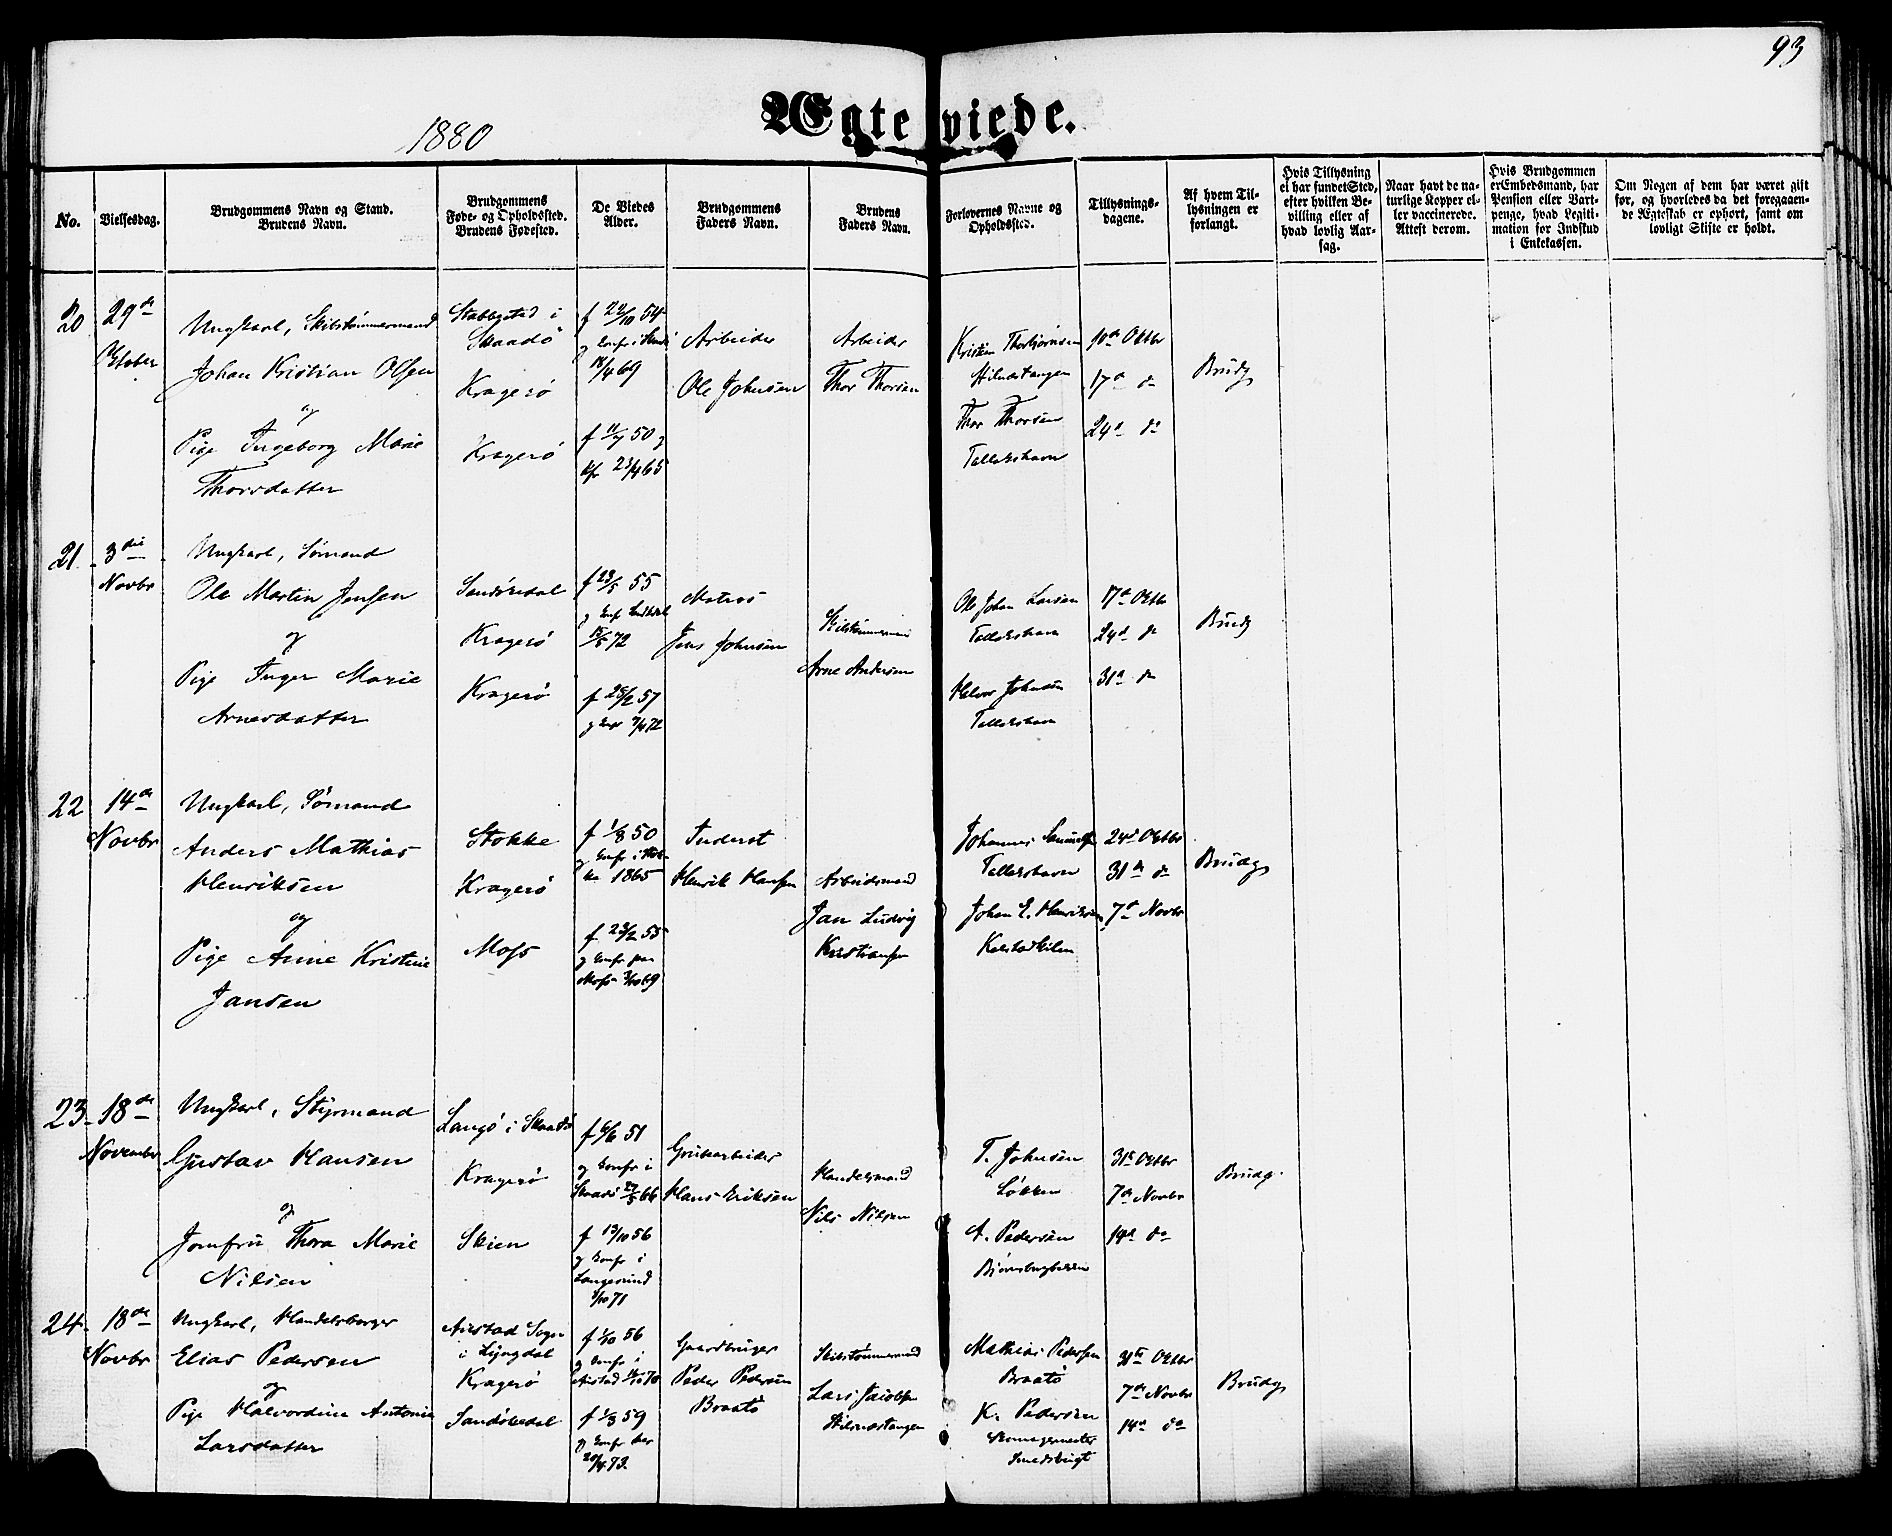 93
1880
Ægteviede.
No.
Vielsesdag.
Brudgommens Navn og Stand.
Brudens Navn.
Brudgommens
Føde- og Opholdssted.
Brudens Fødested.
De Viedes
Alder.
Brudgommens
Faders Navn.
Brudens
Faders Navn.
Forlovernes Navne og
Opholdssted.
Tillysnings-
dagene.
Af hvem Til-
lysningen er
forlangt.
Hvis Tillysning
ei har fundet Sted,
efter hvilken Be-
villing eller af
hvad lovlig Aar-
sag.
Naar havt de na-
turlige Kopper el-
ler vaccinerede.
Attest derom.
Hvis Brudgommen
er Embedsmand, har
Pension eller Vart-
penge, hvad Legiti-
mation for Indskud
i Enkekassen.
Om Nogen af dem har været gift
før, og hvorledes da det foregaaen-
de Ægteskab er ophørt, samt om
lovligt Skifte er holdt.
20
29de
Oktober
Ungkarl, Skibstømmermand
Johan Kristian Olsen
og
Pige Ingeborg Marie
Thorsdatter
Stabbestad i
Skaadø
Kragerø
Kragerø
f 22/10 54
18/4 69
f 11/7 50 og
kfr 23/4 65
Arbeider
Ole Johnsen
Arbeider
Thor Thorsen
Kristian Thorbjørnsen
Stilnestangen
Thor Thorsen
Tallakshavn
10de Oktbr
17de do
24de do
Brudg
21
3die
Novbr
Ungkarl, Sømand
Ole Martin Jensen
og
Pige Inger Marie
Arnesdatter
Sandøkedal
Kragerø
Kragerø
f 23/5 55
f 25/2 57
Matros
Jens Johnsen
Skibstømmermand
Arne Andersen
Ole Johan Larsen
Tallakshavn
Halvor Johnsen
Tallakshavn
17de Oktbr
24de do
31te do
Brudg
22
14de
Novbr
Ungkarl, Sømand
Anders Mathias
Henriksen
og
Pige Anne Kristine
Jansen
Stokke
Kragerø
Moss
f 1/8 50
og konfr i Stok-
ke 1865
f 23/2 55
og konfr paa
Moss 3/10 69
Inderst
Henrik Hansen
Arbeidsmand
Jan Ludvig
Kristiansen
Johannes Samuelsen
Tallakshavn
Johan E. Henriksen
Kalstadkilen
24de Oktbr
31te do
7de Novbr
Brudg
23
18de
November
Ungkarl, Styrmand
Gustav Hansen
og
Jomfru Thora Marie
Nilsen
Langø i Skaadø
Kragerø
Skien
f 6/6 51
og konfr i
Skaadø 27/5 66
f 13/10 56
og konfr i
Langesund
1/10 71
Grubearbeider
Hans Eriksen
Handelsmand
Nils Nilsen
T. Johnsen
Løkken
A. Pedersen
31te Oktbr
7de Novbr
14de do
Brudg.
24
18de
Novbr
Ungkarl, Handelsborger
Elias Pedersen
og
Pige Halvordine Antonie
Larsdatter
Austad Sogn
i Lyngdal
Kragerø
Sandøkedal
f 1/10 56
og konfr i
f 1/3 59
og konfr her
20/4 73
Gaardbruger
Peder Pedersen
Braatø
Skibstømmermand
Lars Jacobsen
Stilnestangen
Mathias Pedersen
Braatø
K. Pedersen
Skomagermester
Smedsbugt
31te Oktbr
7de Novbr
14de do
Brudg